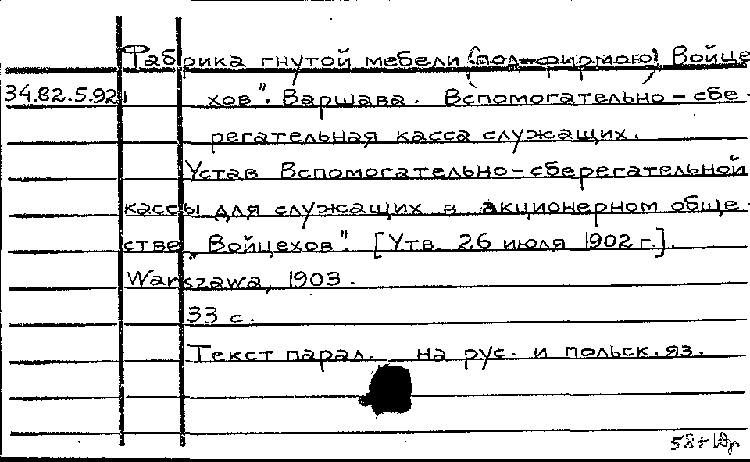 Фабрика гнутой мебели (под фирмою) Войце-
34.82.5.92 хов". Варшава. Вспомогательно-сбе-
регательная касса служащих.
Устав Вспомогательно-сберегательной
кассы для служащих в акционерном обще-
стве „Войцехов". [Утв. 26 июля 1902 г.].
Warszawa, 1903.
33 с.
Текст парал. на рус. и польск. яз.